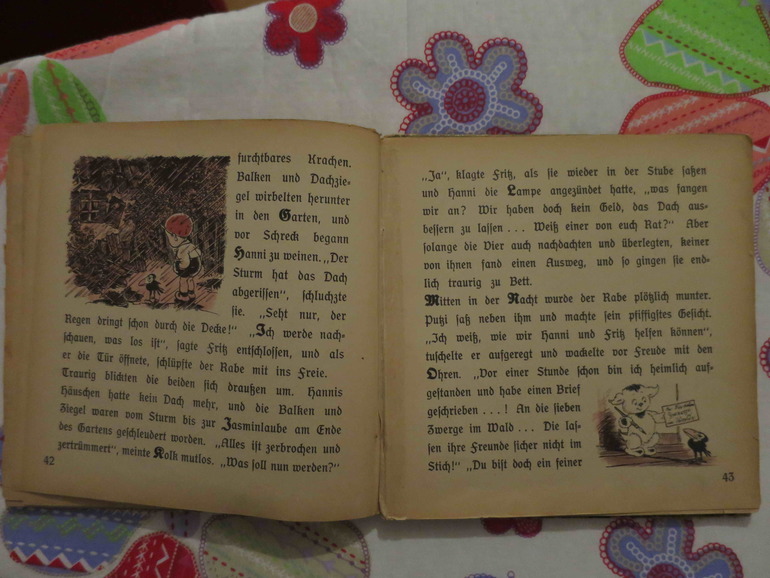 furchtbares Krachen.
Balken und Dachzie-
gel wirbelten herunter
in den Garten, und
vor Schreck begann
Hanni zu weinen. „Der
Sturm hat das Dach
abgerissen", schluchzte
sie. „Seht nur, der
Regen dringt schon durch die Decke!" „Ich werde nach-
schauen, was los ist", sagte Fritz entschlossen, und als
er die Tür öffnete, schlüpfte der Rabe mit ins Freie.
Traurig blickten die beiden sich draußen um. Hannis
Häuschen hatte kein Dach mehr, und die Balken und
Ziegel waren vom Sturm bis zur Jasminlaube am Ende
des Gartens geschleudert worden. „Alles ist zerbrochen und
zertrümmert", meinte Kolk mutlos. „Was soll nun werden?"
42
„Ja", klagte Fritz, als sie wieder in der Stube saßen
und Hanni die Lampe angezündet hatte, „was fangen
wir an? Wir haben doch kein Geld, das Dach aus-
bessern zu lassen . . . Weiß einer von euch Rat?" Aber
solange die Vier auch nachdachten und überlegten, keiner
von ihnen fand einen Ausweg, und so gingen sie end-
lich traurig zu Bett.
Mitten in der Nacht wurde der Rabe plötzlich munter.
Putzi saß neben ihm und machte sein pfiffigstes Gesicht.
„Ich weiß, wie wir Hanni und Fritz helfen können",
tuschelte er aufgeregt und wackelte vor Freude mit den
Ohren. „Vor einer Stunde schon bin ich heimlich auf-
gestanden und habe einen Brief
geschrieben . . . ! An die sieben
Zwerge im Wald . . . Die las-
sen ihre Freunde sicher nicht im
Stich!" „Du bist doch ein feiner
43